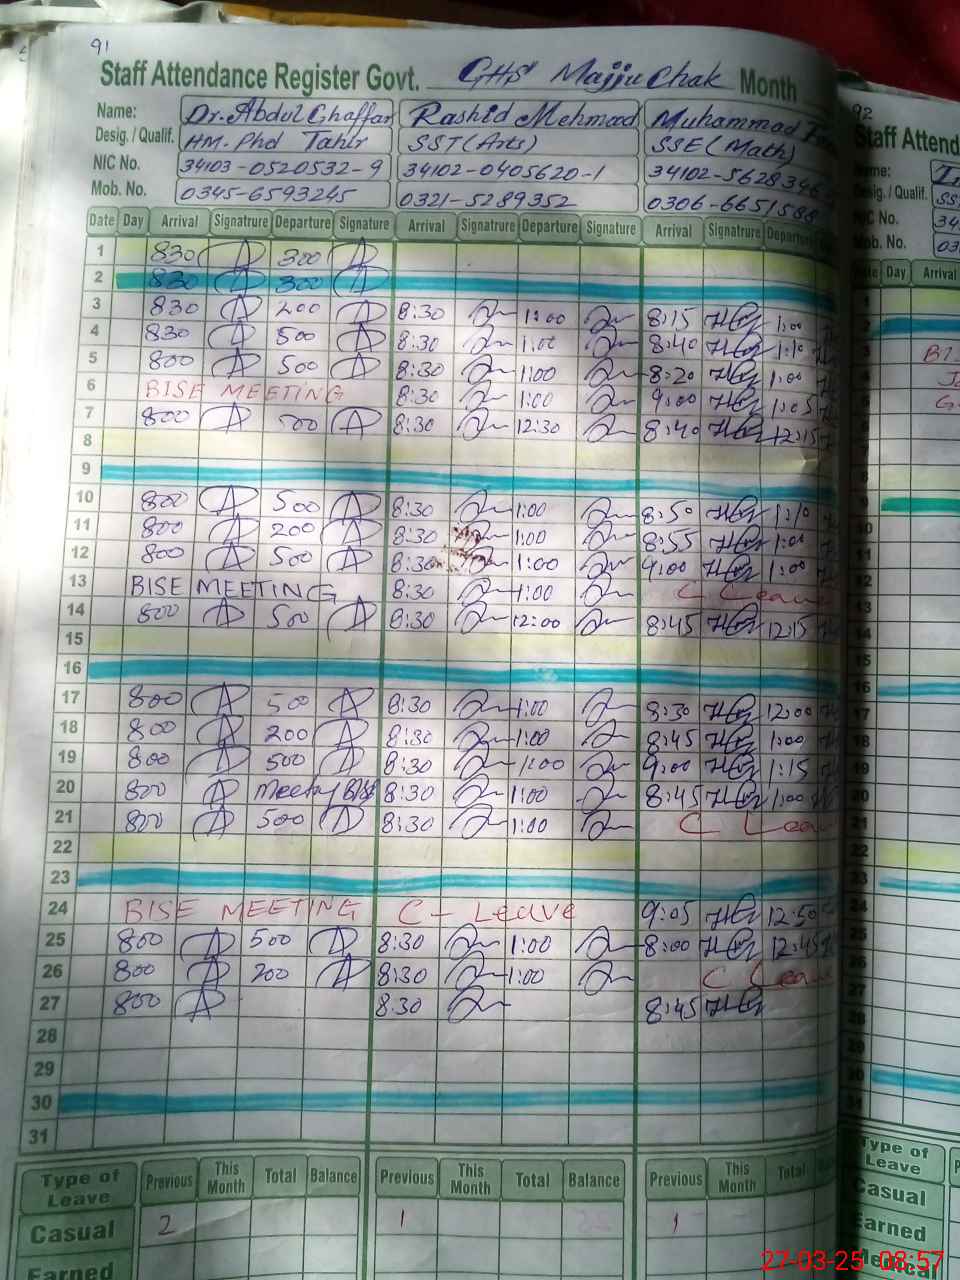 91
Staff Attendance Register Govt. GHS Majju Chak Month
Name: Dr. Abdul Ghaffar Rashid Mehmood Muhammad
Desig. / Qualif. HM. Phd Tahir SST (Arts) SSE (Math)
NIC No. 34103-0520532-9 34102-0405620-1 34102-5628346
Mob. No. 0345-6593245 0321-5289352 0306-6651588
Date Day Arrival Signatrure Departure Signature Arrival Signatrure Departure Signature Arrival Signatrure Departure
1 830 300
2 830 300
3 830 200 8:30 1:00 8:15 1:00
4 830 500 8:30 1:00 8:40 1:10
5 800 500 8:30 1:00 8:20 1:00
6 BISE MEETING 8:30 1:00 9:00 1:05
7 800 500 8:30 12:30 8:40 12:15
8
9
10 800 500 8:30 1:00 8:50 1:10
11 800 200 8:30 1:00 8:55 1:00
12 800 500 8:30 1:00 9:00 1:00
13 BISE MEETING 8:30 1:00 C Leave
14 800 500 8:30 12:00 8:45 12:15
15
16
17 800 500 8:30 1:00 8:30 12:00
18 800 200 8:30 1:00 8:45 1:00
19 800 500 8:30 1:00 9:00 1:15
20 800 Meeting BISE 8:30 1:00 8:45 1:00
21 800 500 8:30 1:00 C Leav
22
23
24 BISE MEETING C- Leave 9:05 12:50
25 800 500 8:30 1:00 8:00 12:45
26 800 200 8:30 1:00 C Leave
27 800 8:30 8:45
28
29
30
31
Type of Leave Previous This Month Total Balance Previous This Month Total Balance Previous This Month Total
Casual 2 1 1
Earned
92
Staff Attend
Name:
Desig. / Qualif.
NIC No. 34
Mob. No. 03
Date Day Arrival
Type of Leave
Casual
Earned
Medical
27-03-25 08:57